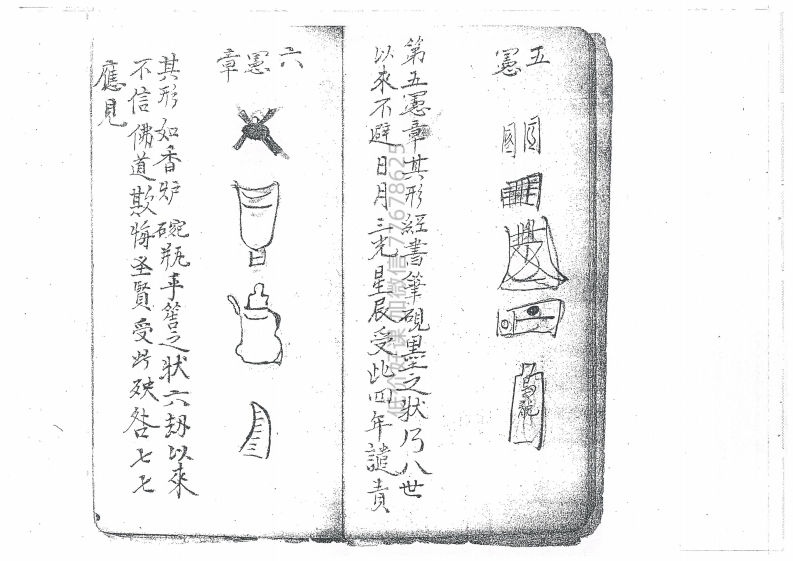 五
憲
第五憲章其形經書筆硯墨之狀乃八世
以來不避日月三光星辰受此四年譴責
六
憲
章
其形如香炉碗瓶手筶之狀六劫以來
不信佛道欺悔圣賢受此殃咎七七
應見